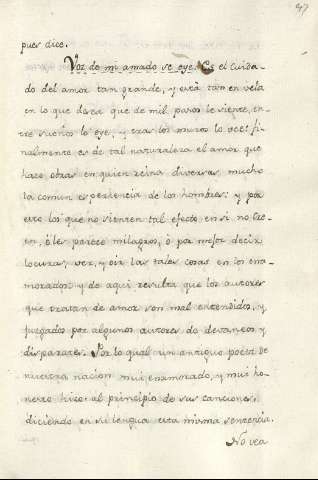 97
pues dice.
Voz de mi amado se oye. Es el cuida-
do del amor tan grande, y está tan en vela
en lo que desea que de mil pasos le siente, en-
tre sueños lo oye, y tras los muros lo ve: fi-
nalmente es de tal naturaleza el amor que
hace obras en quien reina diversas mucho
la comun esperiencia de los hombres: y por
esto los que no sienten tal efecto en si no cre-
en, ò les parece milagros, o por mejor decir
locuras, ver, y oir las tales cosas en los ena-
morados; y de aqui resulta que los autores
que tratan de amor son mal entendidos, y
juzgados por algunos autores de devaneos y
disparates. Por lo qual un antiguo poeta de
nuestra nacion mui enamorado, y mui ho-
nesto hizo: al principio de sus canciones,
diciendo en su lengua esta misma sentencia.
No vea